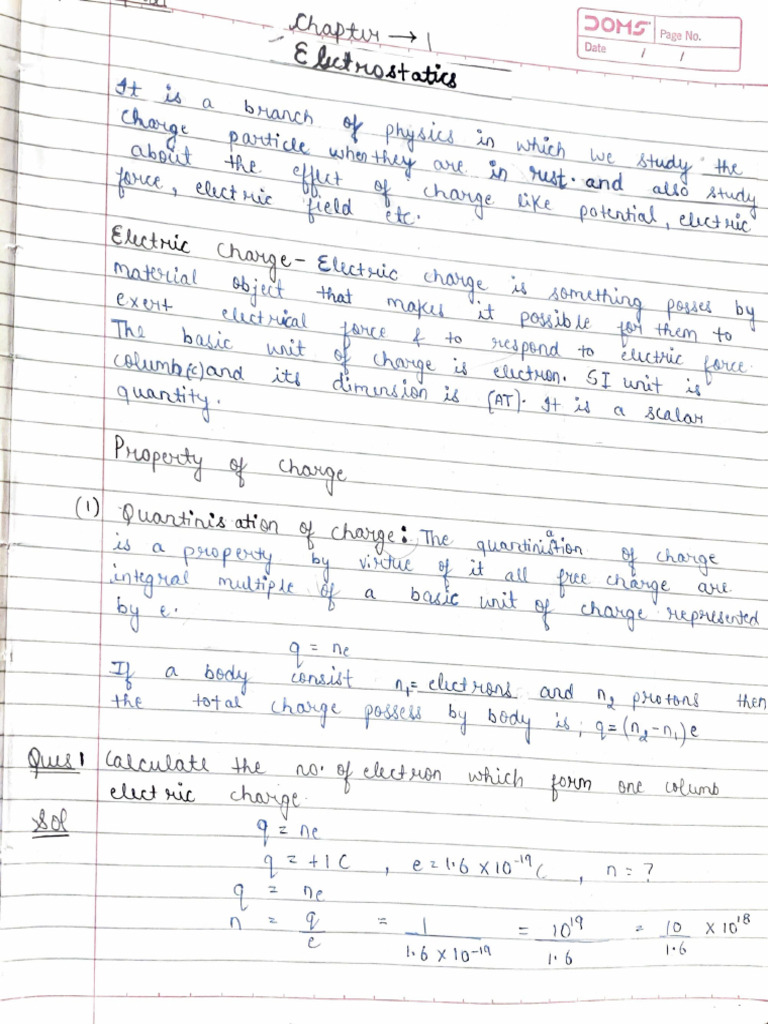 Chapter → 1
DOMS Page No.
Date / /
Electrostatics
It is a branch of physics in which we study the
charge particle when they are in rest. and also study
about the effect of charge like potential, electric
force, electric field etc.
Electric Charge - Electric charge is something posses by
material object that makes it possible for them to
exert electrical force & to respond to electric force.
The basic unit of charge is electron. SI unit is
columb(c) and its dimension is [AT]. It is a scalar
quantity.
Property of charge
(1) Quantinisation of charge: The quantinisation of charge
is a property by virtue of it all free charge are
integral multiple of a basic unit of charge represented
by e.
q = ne
If a body consist n₁= electrons and n₂ protons then
the total charge possess by body is, q=(n₂-n₁)e
Ques 1 Calculate the no. of electron which form one columb
electric charge.
Sol
q = ne
q = +1C , e = 1.6 × 10⁻¹⁹C , n = ?
q = ne
n = q/e = 1/1.6 × 10⁻¹⁹ = 10¹⁹/1.6 = 10/1.6 × 10¹⁸